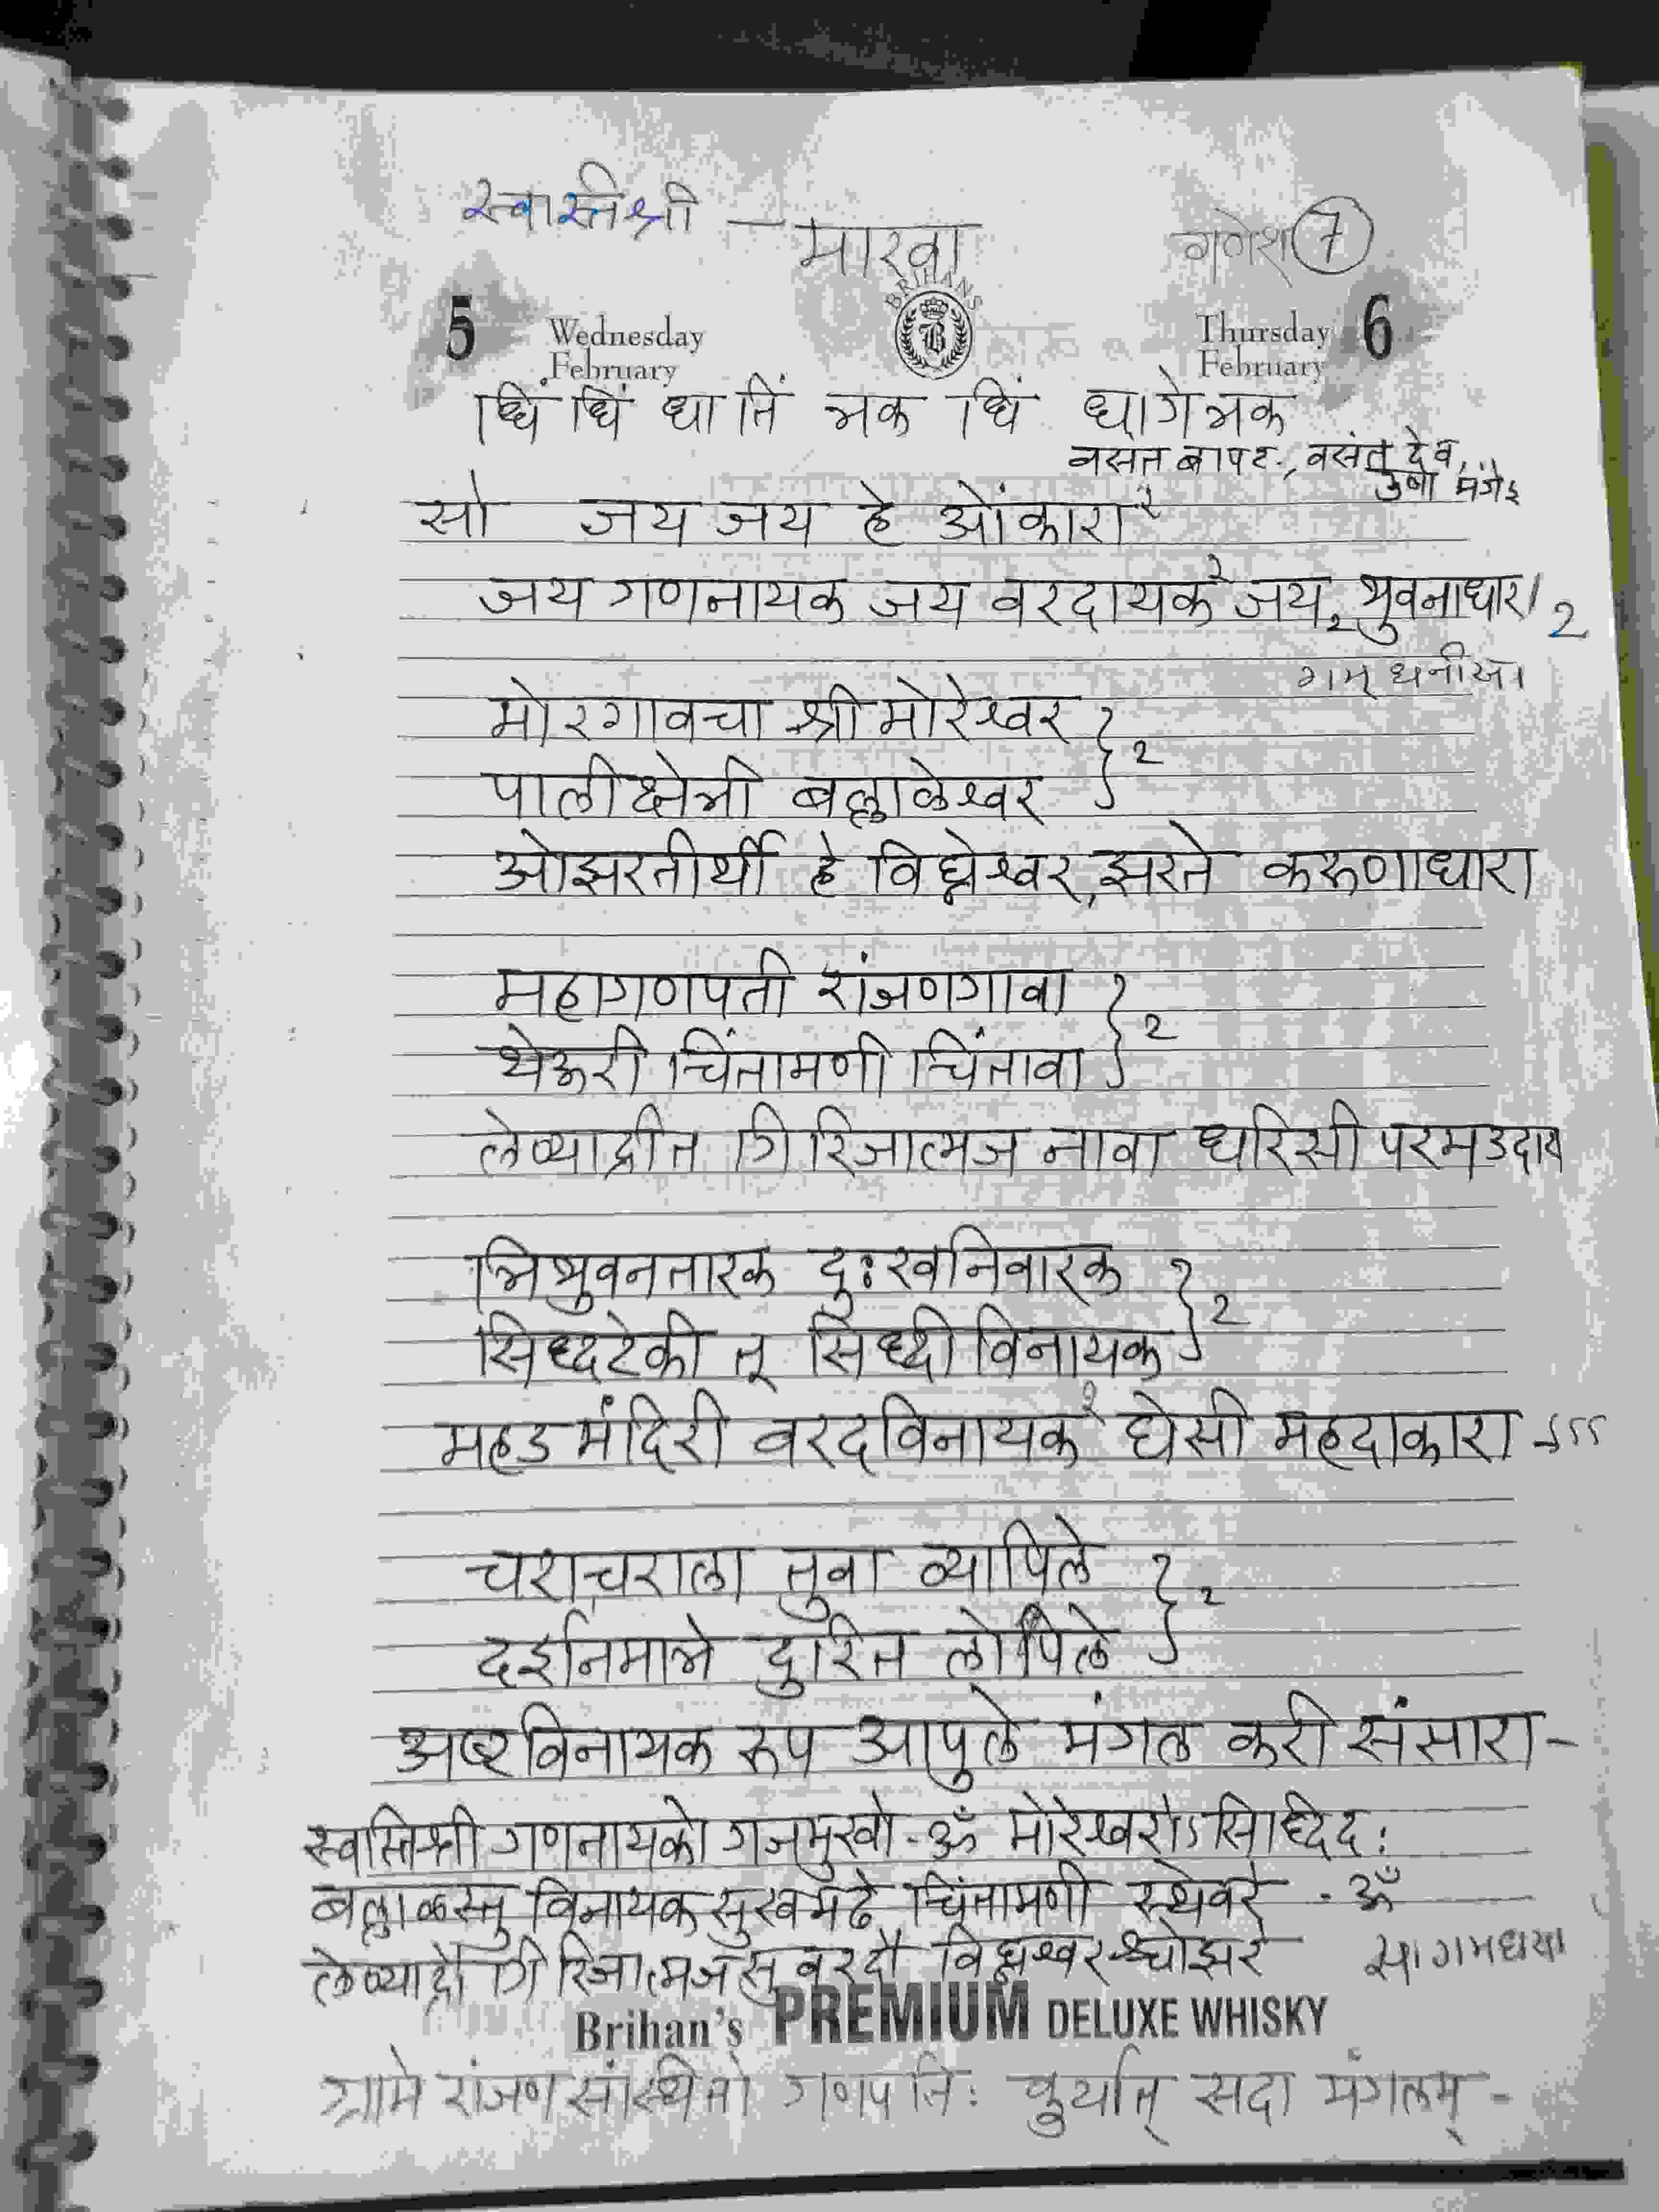 स्वास्तिश्री — मारवा गणेश 7
BRIHANS
5 Wednesday February Thursday February 6
धिं धिं धा तिं त्रक धिं धागेत्रक
वसंत बापट, वसंत देव,
सो जय जय हे ओंकारा २
जय गणनायक जय वरदायक जय २ भुवनाधारा 2
गम् धनीसा
मोरगावचा श्री मोरेश्वर
पालीक्षेत्री बल्लाळेश्वर } 2
ओझरतीर्थी हे विघ्नेश्वर, झरते करुणाधारा
महागणपती रांजणगावा
थेऊरी चिंतामणी चिंतावा } 2
लेण्याद्रीत गिरिजात्मज नावा धरिसी परमउदारा
त्रिभुवनतारक दुःखनिवारक
सिध्दटेकी तू सिध्दीविनायक } 2
महड मंदिरी वरदविनायक २ घेसी महदाकारा -sss
चराचराला तुवा व्यापिले
दर्शनमात्रे दुरित लोपिले } 2
अष्टविनायक रूप आपुले मंगल करी संसारा -
स्वस्तिश्री गणनायको गजमुखो - ॐ मोरेश्वरोऽ सिध्दिदः
बल्लाळस्तु विनायक सुखमढे चिंतामणी स्थेवरे - ॐ
लेण्याद्रौ गिरिजात्मज सुवरदौ विघ्नेश्वरश्चोझरे
Brihan's PREMIUM DELUXE WHISKY
ग्रामे रांजण संस्थितो गणपतिः कुर्यात् सदा मंगलम् -